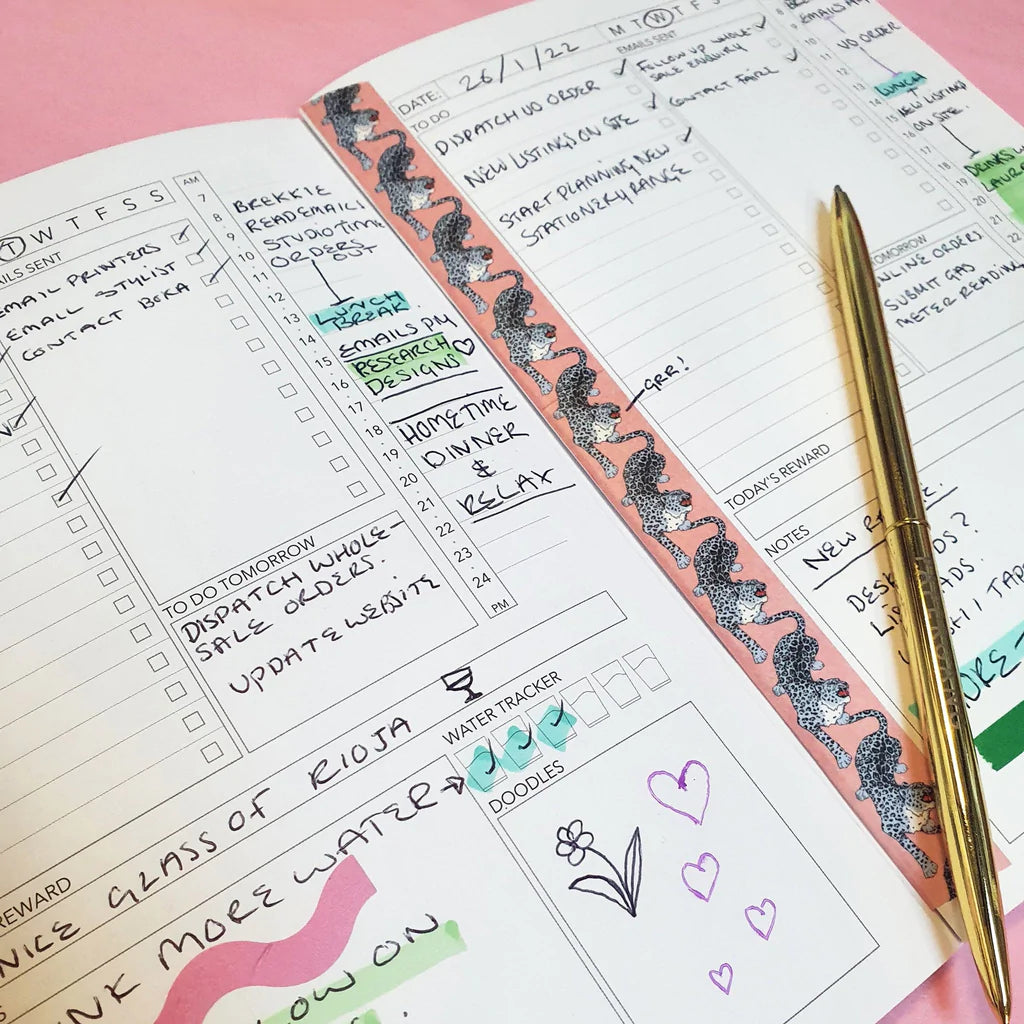 T W T F S S
EMAILS SENT
EMAIL PRINTERS
EMAIL STYLIST
CONTACT BEKA
TO DO TOMORROW
DISPATCH WHOLE-
SALE ORDERS.
UPDATE WEBSITE
AM
7
8
9
10
11
12
13
14
15
16
17
18
19
20
21
22
23
24
PM
BREKKIE
READ EMAILS
STUDIO TIME
ORDERS
LUNCH
BREAK
EMAILS PM
RESEARCH
DESIGNS
HOMETIME
DINNER
&
RELAX
REWARD
NICE GLASS OF RIOJA
MORE WATER
LOW ON
WATER TRACKER
DOODLES
DATE: 26/1/22
M T W T F S
TO DO
DISPATCH UO ORDER
NEW LISTINGS ON SITE
START PLANNING NEW
STATIONERY RANGE
EMAILS SENT
FOLLOW UP WHOLE-
SALE ENQUIRY
CONTACT FAIRE
GRR!
TOMORROW
ONLINE ORDERS
SUBMIT GAS
METER READING
8
9
10
11
12
13
14
15
16
17
18
19
20
21
22
EMAILS AM
UO ORDER
LUNCH
NEW LISTING
ON SITE
DRINKS W
LAURA
TODAY'S REWARD
NOTES
NEW